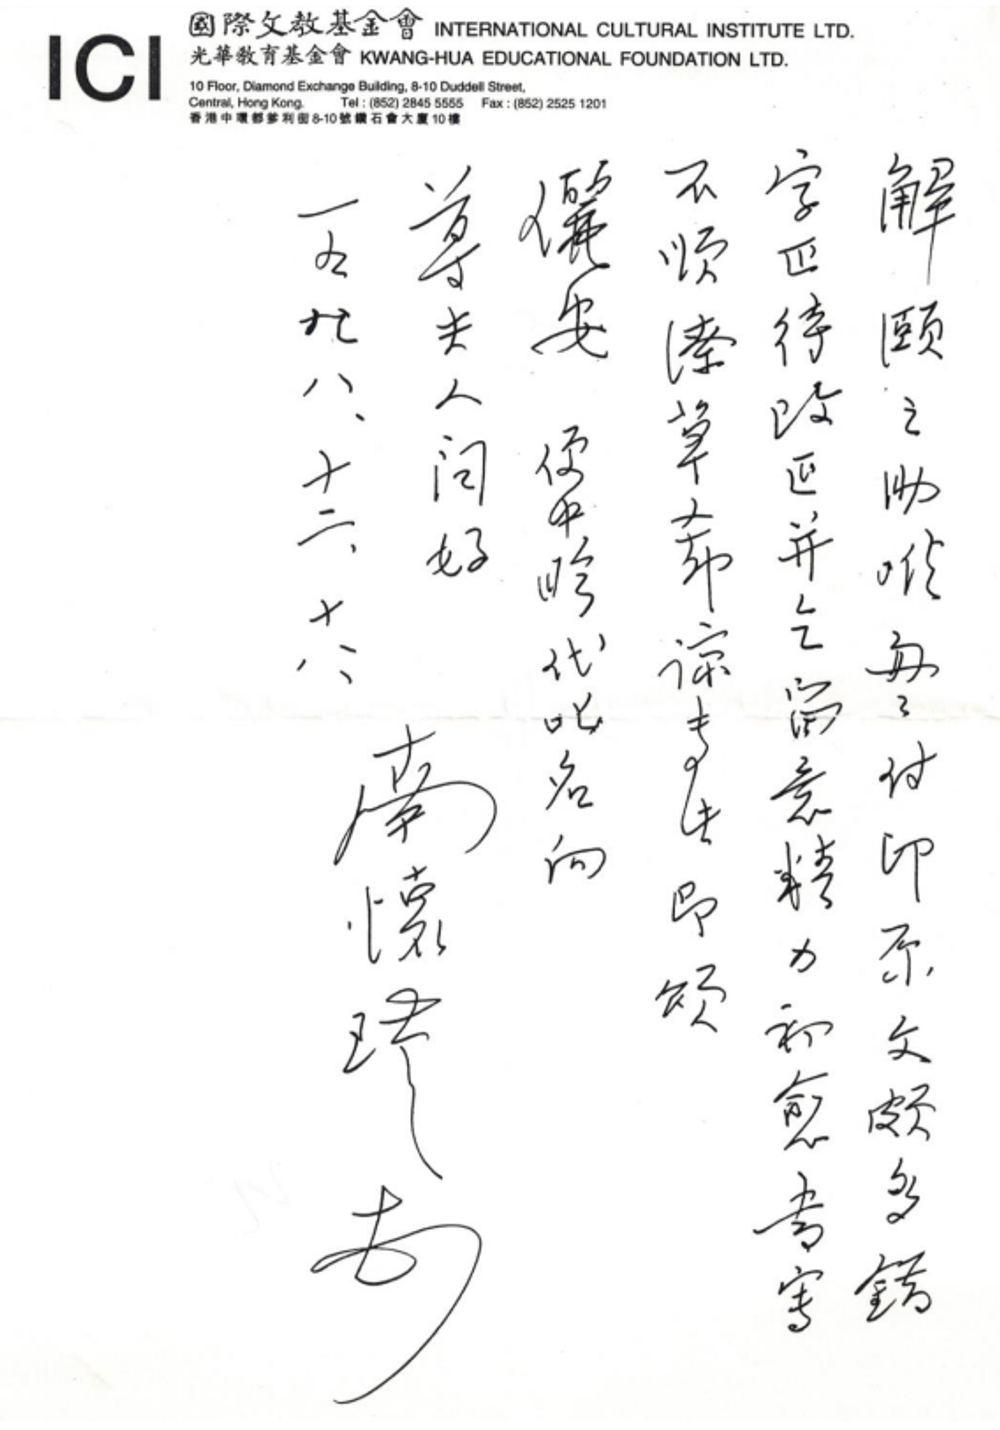 ICI
國際文教基金會 INTERNATIONAL CULTURAL INSTITUTE LTD.
光華教育基金會 KWANG-HUA EDUCATIONAL FOUNDATION LTD.
10 Floor, Diamond Exchange Building, 8-10 Duddell Street,
Central, Hong Kong. Tel : (852) 2845 5555 Fax : (852) 2525 1201
香港中環都爹利街8-10號鑽石會大廈10樓
解頤之助唯匆匆付印原文頗多錯
字正待改正并乞留意精力初愈書寫
不順潦草之諒專此即頌
儷安 便中盼代叱名向
尊夫人问好
一九九八、十二、十八、
南懷瑾